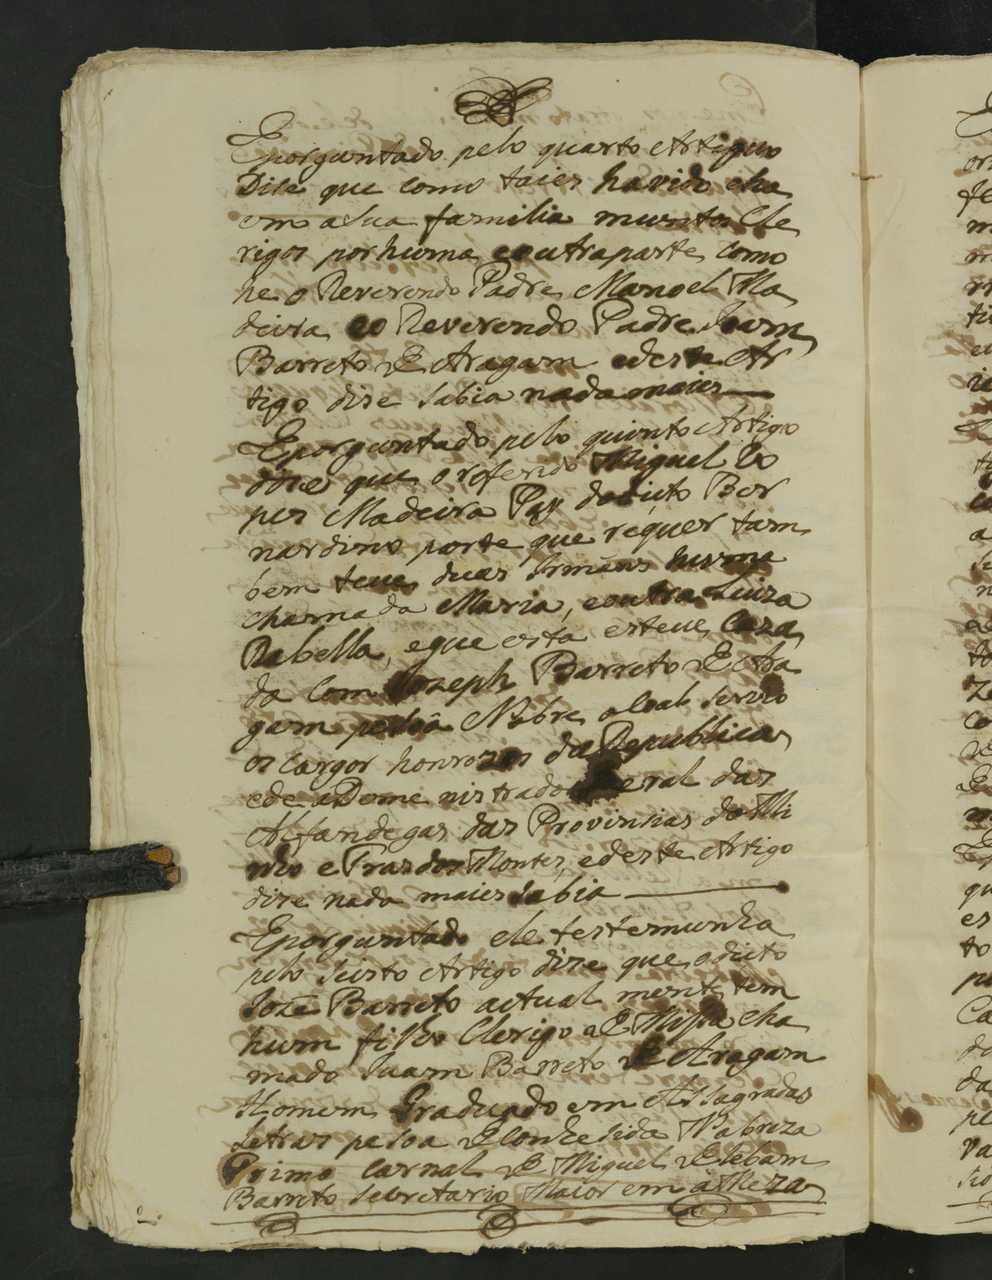 Eporguntado pelo quarto Artiguo
Dise que como taies havido cha
em a sua familia muntos Cle
rigos por huma eoutra parte, como
he o Reverendo Padre Manoel Ma
deira eo Reverendo Padre Joam
Barreto De Aragam edeste Ar
tigo dise sabia nada maies
Eporguntado pelo quinto Artigo
dise que o referido Miguel Lo
pes Madeira Pay do dicto Ber
nardino, parte que requer tam
bem teve duas Irmãns huma
chamada Maria, eoutra Luiza
Rabella, eque esta esteve Caza
da Com Jozeph Barreto De Ara
gam pesoa Nobre, o coal servio
os cargos honrozos da Republica
ede aDeme nistrador geral das
Alfandegas das Provinsias do Mi
nho e Tras dos Montes, edeste Artigo
dise nada maies sabia
Eporguntado ele testemunha
pelo Seisto Artigo dise que o dicto
Joze Barreto actual mente tem
hum filho Clerigo de Missa cha
mado Joam Barreto De Aragam
Homem Graduado em As Sagradas
Letras pesoa De Conhesida Nobreza
Primo Carnal De Miguel De Lebam
Barreto Secretario Maior em a Meza